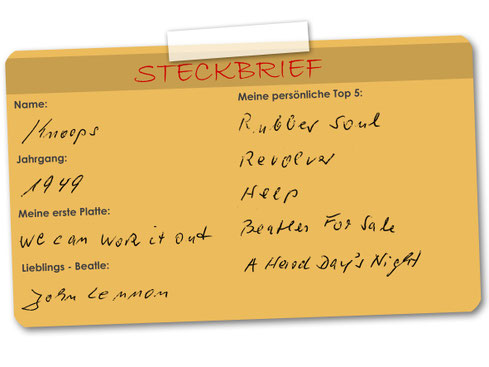 STECKBRIEF
Name:
Knoops
Jahrgang:
1949
Meine erste Platte:
We can work it out
Lieblings - Beatle:
John Lennon
Meine persönliche Top 5:
Rubber Soul
Revolver
Help
Beatles For Sale
A Hard Day's Night